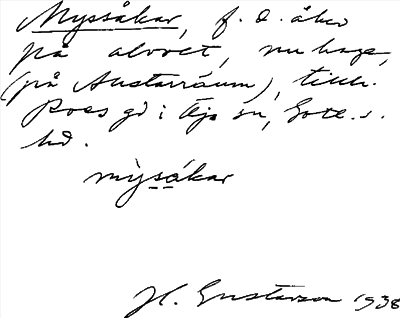 Myssåkar, f.d. åker
på alvret, nu hage,
(på Austarråum), tillh.
Roes gd i Öja sn, Gotl. s.
hd.
mỳsåkar
H. Gustavson 1938